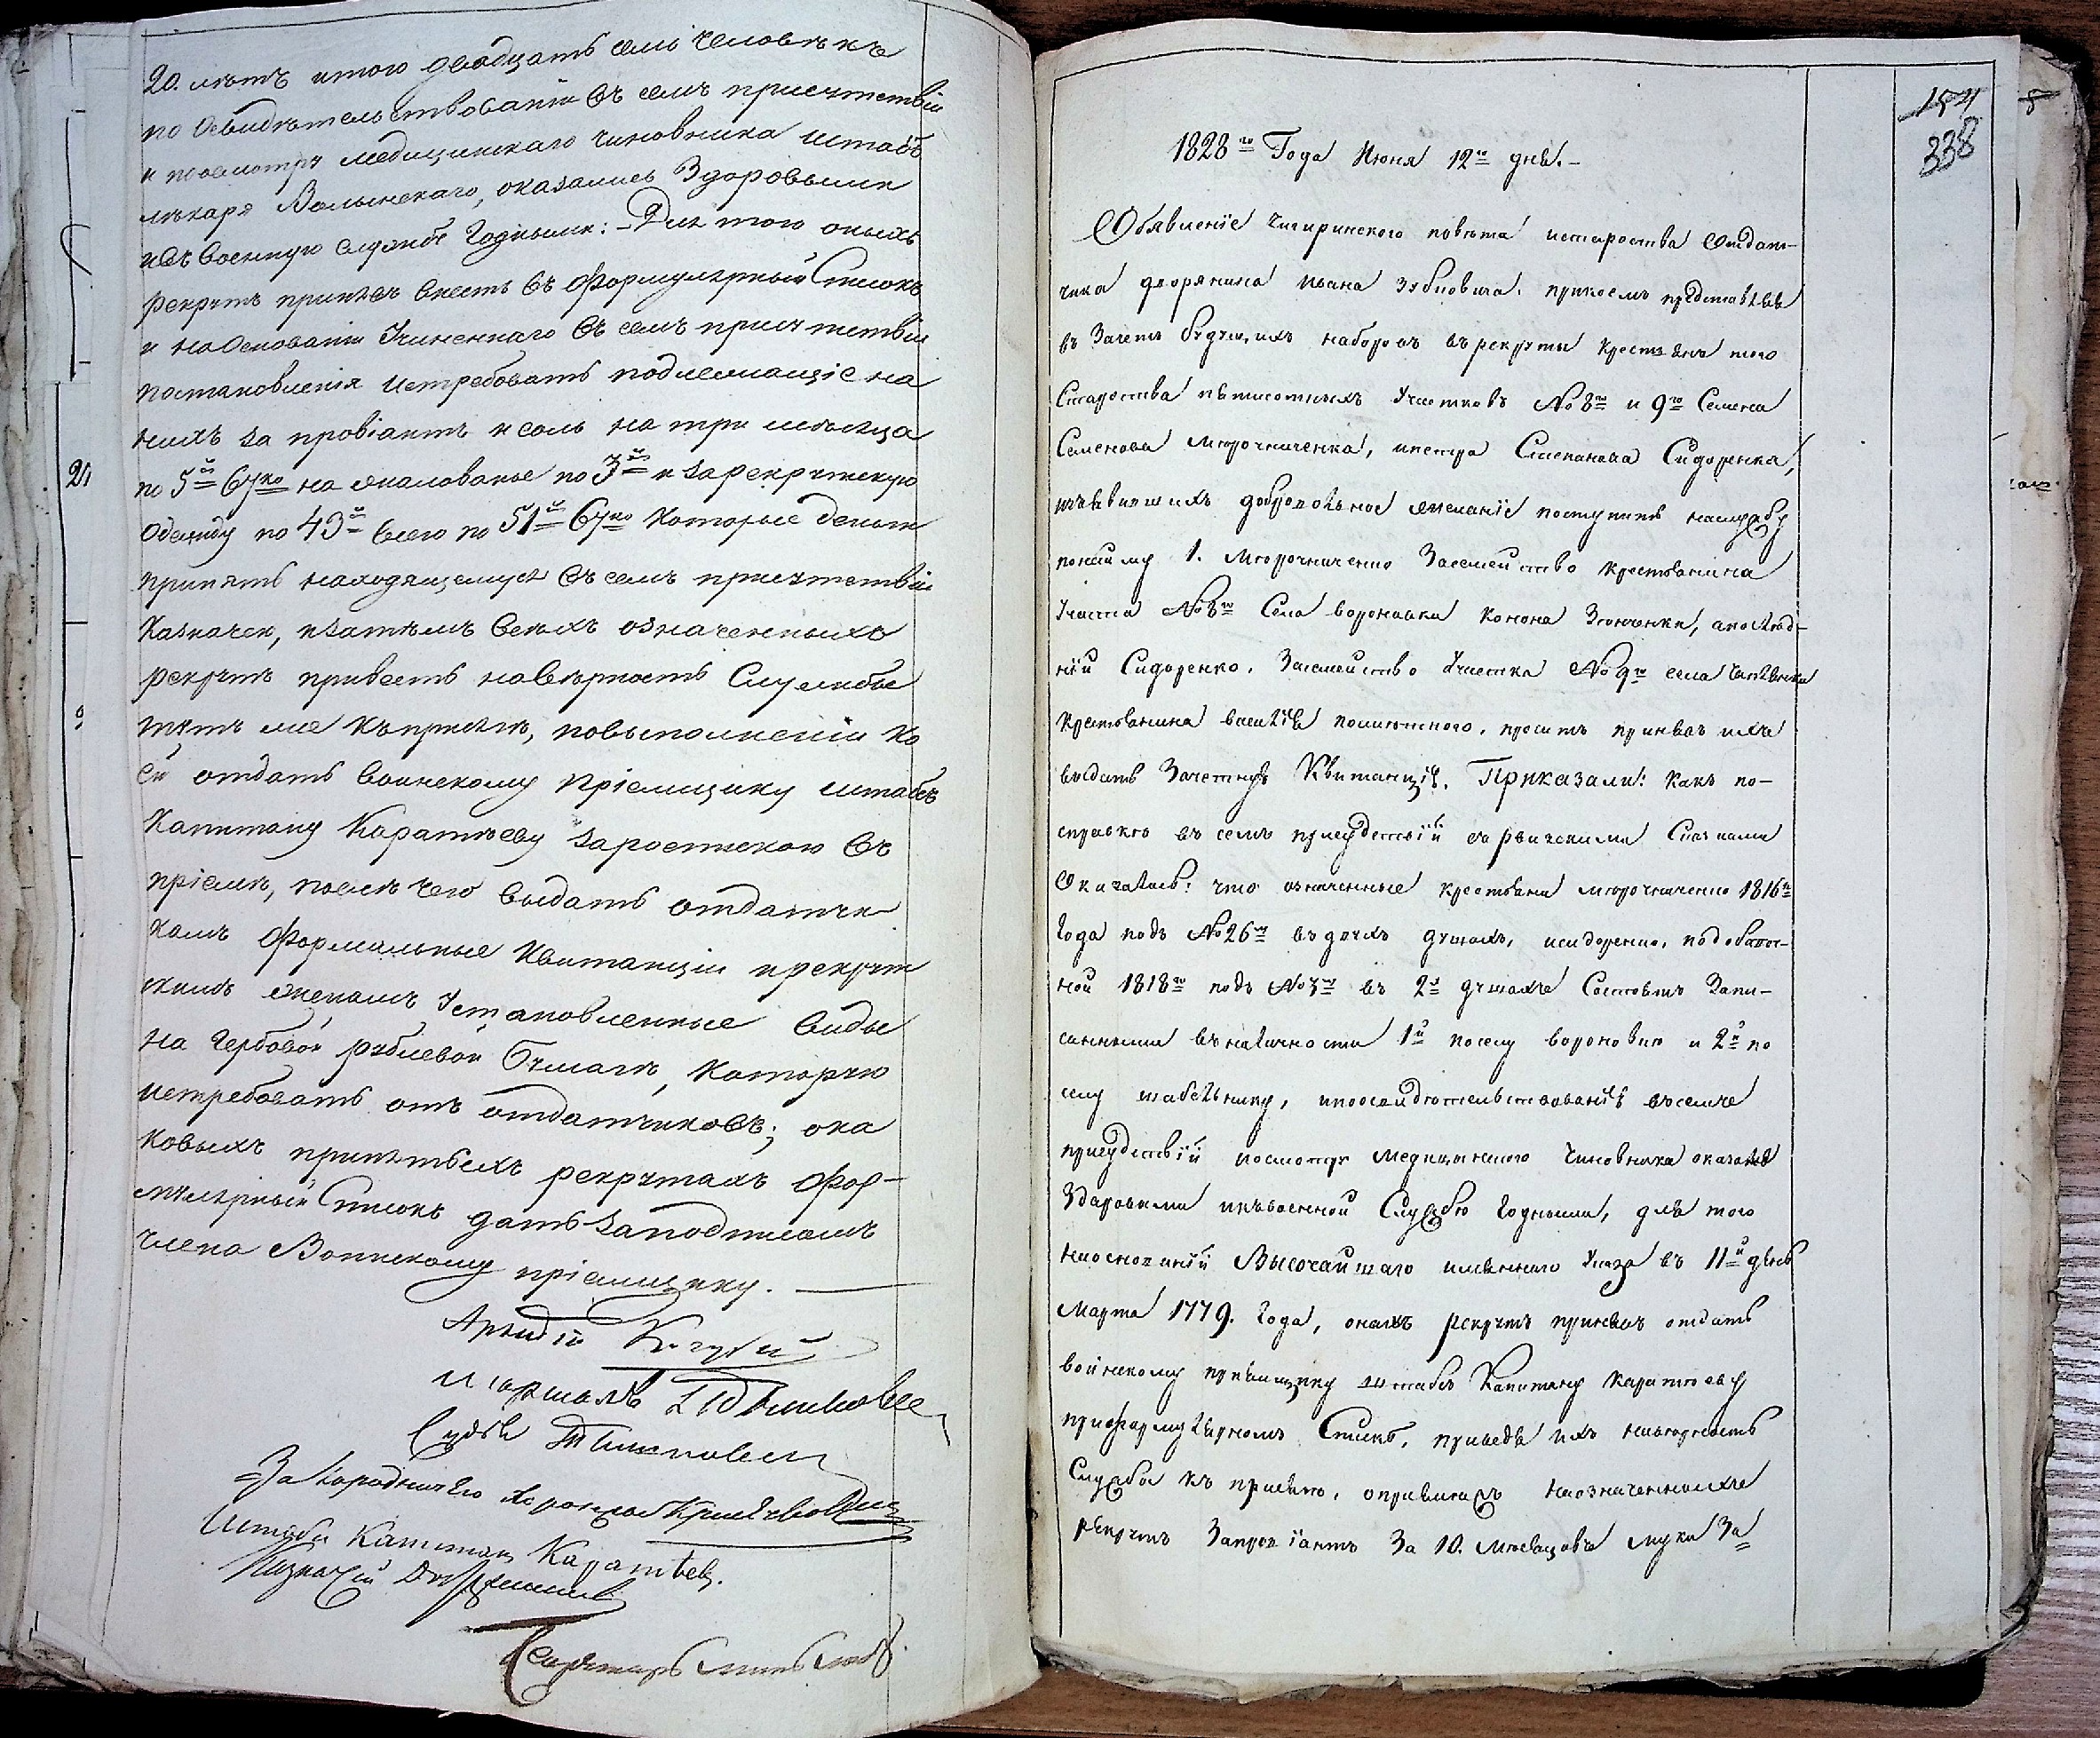 20. лѣтъ итого двадцать семь человѣкъ
по освидѣтельствованіи въ семъ присутствіи
и посмотру медицинскаго чиновника штабъ
лѣкаря Волынскаго, оказались Здоровыми
и въ военную службу Годными: Для того оныхъ
рекрутъ принявъ внесть въ Формулярный Списокъ
и на Основаніи Учиненнаго въ семъ присутствіи
постановленія Истребовать подлежащіе на
нихъ за провіантъ и соль на три мѣсяца
по 5 67ко на жалованье по 3 и за рекрутскую
Одежду по 43 всего по 51 67ко Которые деньги
принять находящемуся въ семъ присутствіи
Казначею, и затѣмъ всѣхъ означенныхъ
рекрутъ привесть на вѣрность Службы
тутъ же къ присягѣ, по выполненіи ко
ей отдать воинскому Пріемщику штабсъ
Капитану Каратѣеву за роспискою въ
пріемѣ, послѣ чего выдать отдатчи
камъ Формальные Квитанціи и рекрут
скимъ женамъ Установленные виды
на Гербовой рублевой Бумагѣ, Которую
истребовать отъ отдатчиковъ; ока
ковыхъ принятыхъ рекрутахъ Фор-
мулярный Списокъ дать за подписомъ
члена Воинскому пріемщику.
Судья
За Городничего
Штабсъ Капитан Каратѣев.
Казначей
Секретарь
21
154
338
1828го Года Июня 12го дня.
Объявленіе Чигиринского повѣта староства Отдат-
чика дворянина Ивана Зубковича. при коемъ представля
въ Зачетъ будущихъ наборовъ въ рекруты Крестьянъ того
Староства пятисотныхъ Участковъ No 8го и 9го Семена
Семенова Мирочниченка, и Петра Степанова Сидоренка,
изъявившихъ добровольное желаніе поступить на службу
по найму 1. Мирочниченко За семейство Крестьянина
Участка No 8го Села Вороновки Конона, а послѣд-
ній Сидоренко. За семейство Участка No 9го села
Крестьянина, просить принявъ ихъ
выдать Зачетную Квитанцію. Приказали: Какъ по-
справкѣ въ семъ присудствіи съ ревизскими Сказками
Оказалось: что означенные крестьяне Мирочниченко 1816го
Года подъ No 26м въ двухъ душахъ, и Сидоренко, по добавоч-
ной 1818го подъ No въ 2х душахъ Состоятъ Запи-
санными въ наличности 1й по селу Вороновкѣ и 2й по
селу Шабельнику, и по освидѣтельствованіи въ семъ
присудствіи и посмотру Медицинского Чиновника оказались
Здоровыми и къ военной Службѣ Годными, для того
на основаніи Высочайшаго имяннаго Указа въ 11й день
Марта 1779. Года, оныхъ рекрутъ принявъ отдать
воинскому пріемщику штабсъ Капитану Каратѣеву
при формулярномъ Спискѣ, приведя ихъ на вѣрность
Службы къ присягѣ, о принятыхъ на означенныхъ
рекрутъ За провіантъ За 10. Мѣсяцовъ муки За